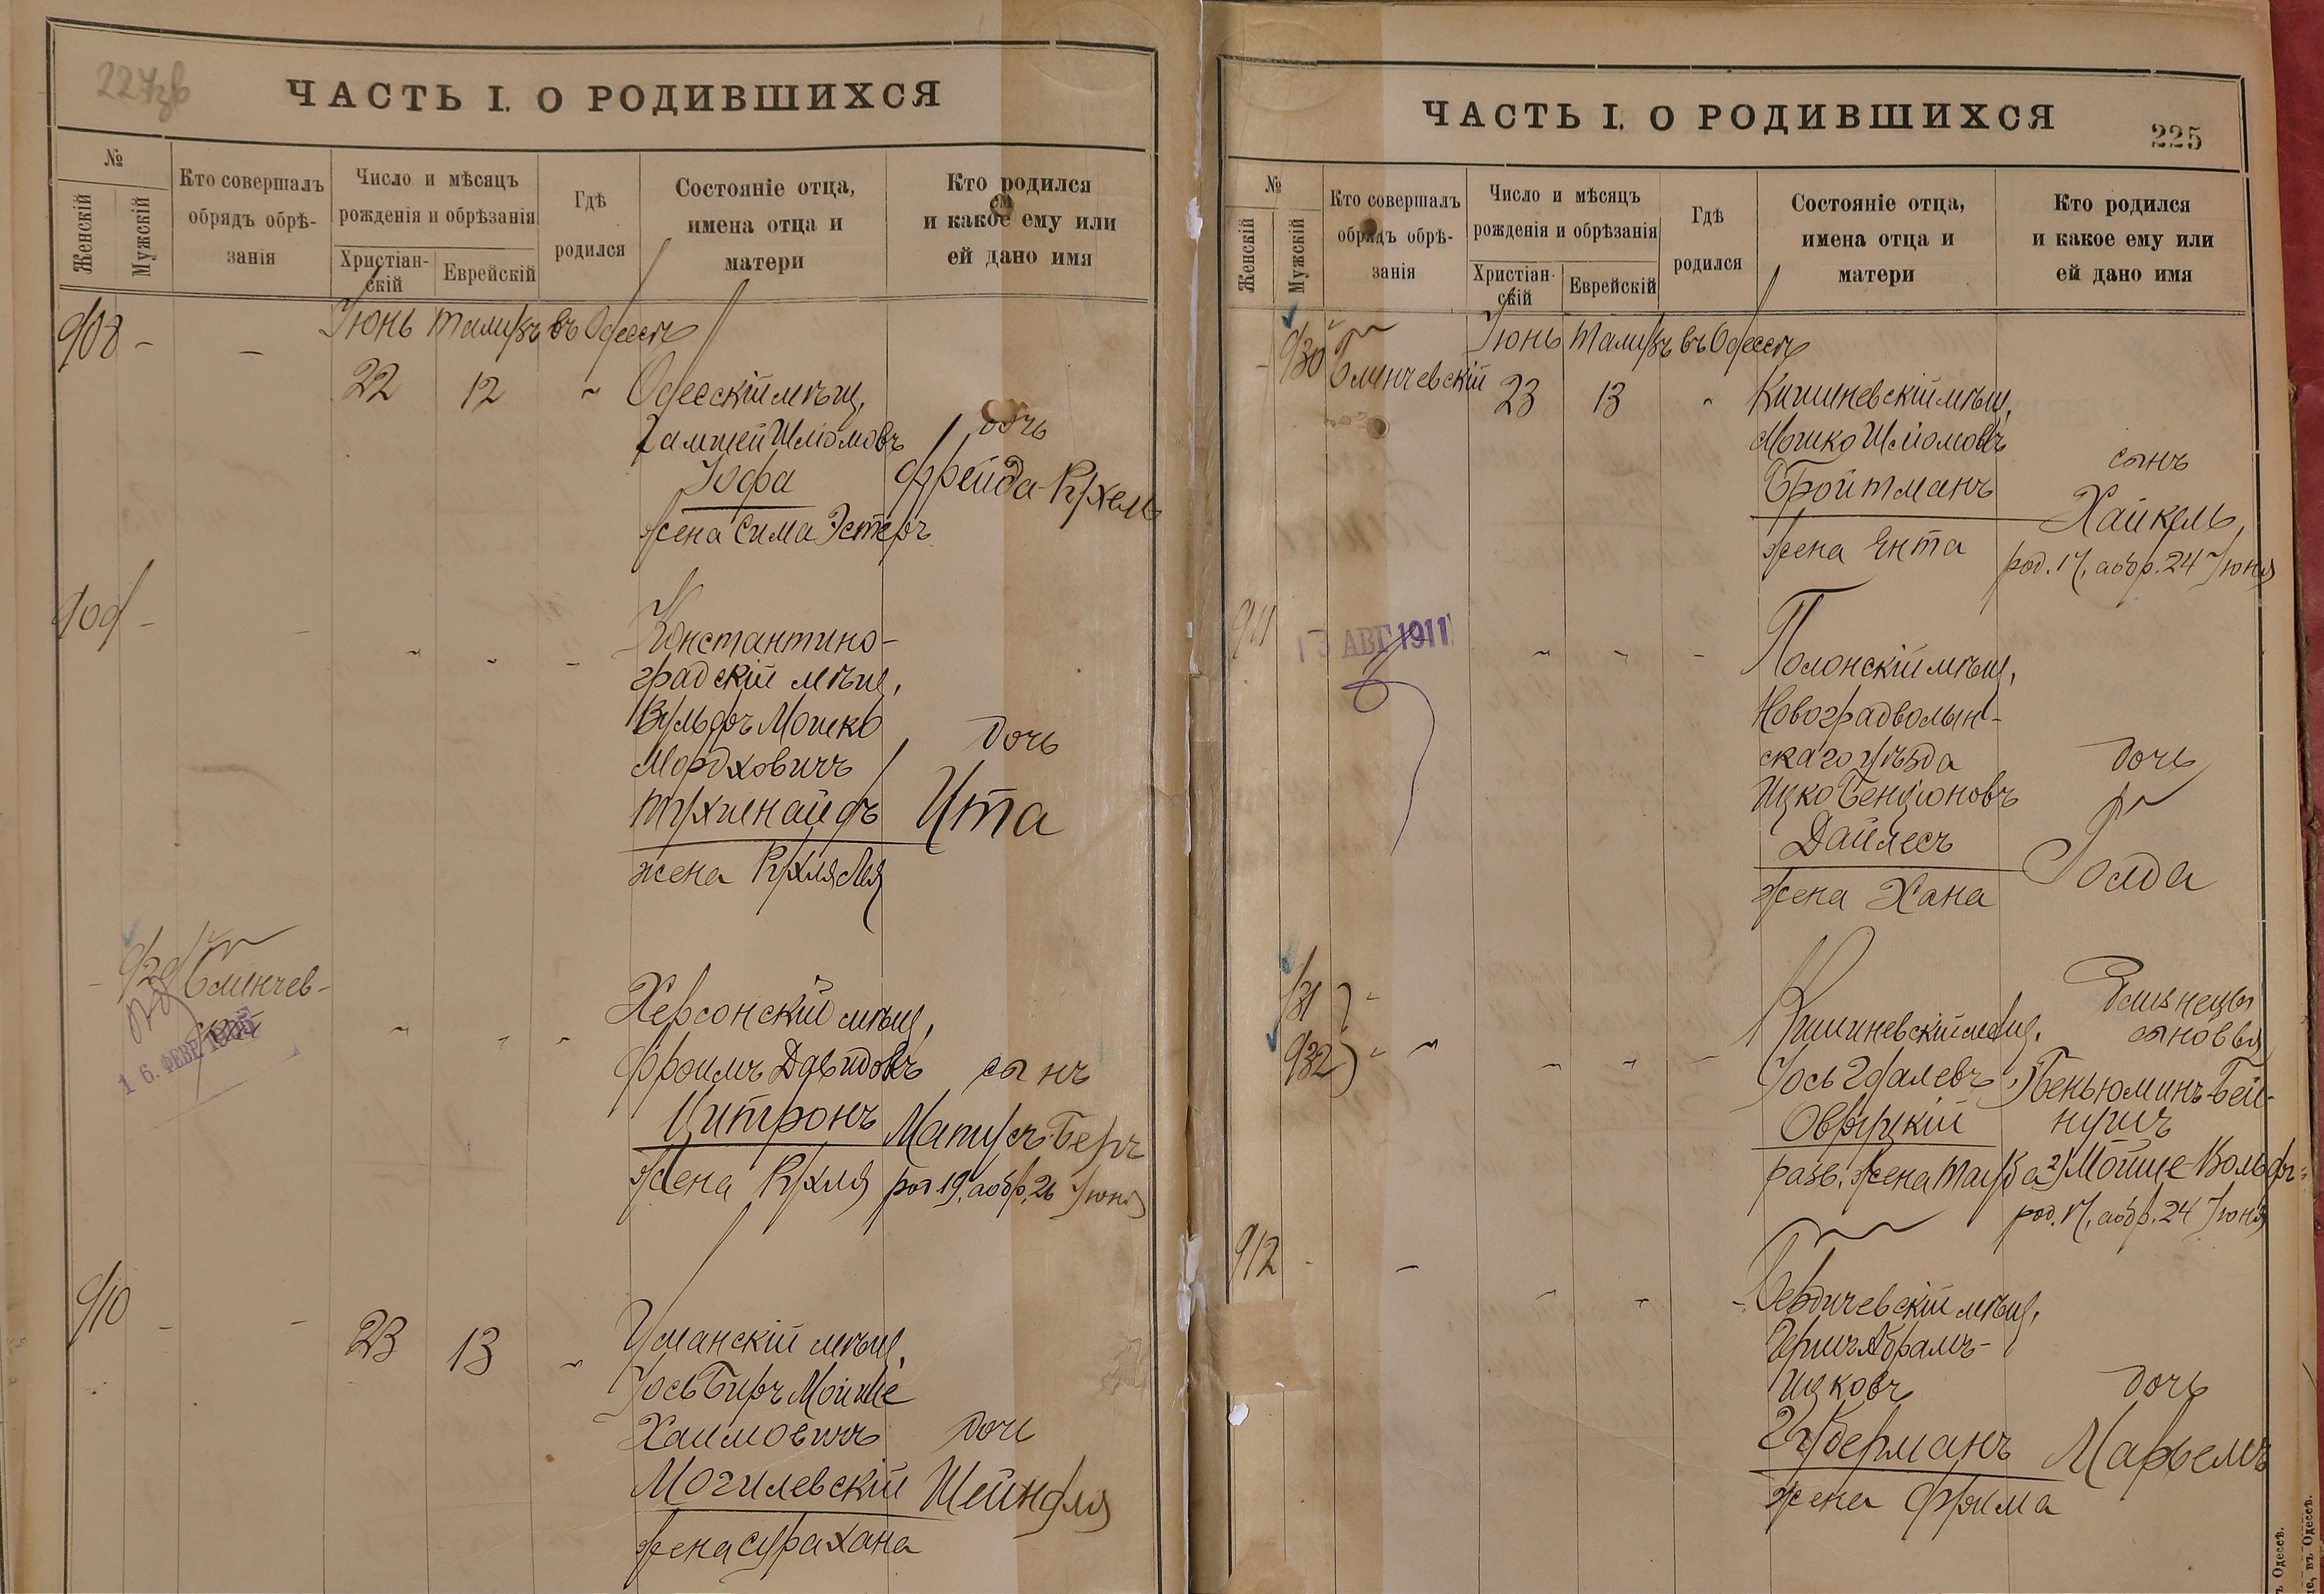 ЧАСТЬ I. О РОДИВШИХСЯ
№
Женскій
Мужскій
Кто совершалъ
обрядъ обрѣ-
занія
Число и мѣсяцъ
рожденія и обрѣзанія
Христіан-
скій
Еврейскій
Гдѣ
родился
Состояніе отца,
имена отца и
матери
Кто родился
и какое ему или
ей дано имя
908 -
-
Іюнь Тамузъ въ Одессѣ
22 12 "
Одесскій мѣщ.
Гамшей Шліомовъ
Іофа
жена Сима Эстеръ
дочь
Фрейда-Рухель
909 -
Константино-
градскій мѣщ.
Вульфъ Мошко
Мордховичъ
Тухшнайдъ
жена Рухля Лея
дочь
Ита
- 929
Блинчев-
скій
16. ФЕВР 1925
Херсонскій мѣщ.
Фроимъ Давидовъ
Цитронъ
жена Рухля
сынъ
Матусъ-Беръ
род. 19, а обр. 26 Іюня
910 -
23 13 "
Уманскій мѣщ.
Іось Биръ Мойше
Хаимовичъ
Могилевскій
жена Сура Хана
дочь
Шейндля
ЧАСТЬ I. О РОДИВШИХСЯ
225
№
Женскій
Мужскій
Кто совершалъ
обрядъ обрѣ-
занія
Число и мѣсяцъ
рожденія и обрѣзанія
Христіан-
скій
Еврейскій
Гдѣ
родился
Состояніе отца,
имена отца и
матери
Кто родился
и какое ему или
ей дано имя
- 930
Блинчевскій
Іюнь Тамузъ въ Одессѣ
23 13 "
Кишиневскій мѣщ.
Мошко Шліомовъ
Бройтманъ
жена Ента
сынъ
Хайкель,
род. 17, а обр. 24 Іюня
911
13 АВГ 1911
Полонскій мѣщ.
Новоградволын-
скаго уѣзда
Ицко Бенціоновъ
Дайлесъ
жена Хана
дочь
Голда
931
932
Кишиневскій мѣщ.
Іось Гдалевъ
Овруцкій
разв. жена Тауба
Близнецы
сыновья
1) Беньюминъ-Бей-
нушъ
2) Мойше-Вольфъ
род. 17, а обр. 24 Іюня
912 -
-
Бердичевскій мѣщ.
Гершъ Абрамъ-
Ицковъ
Губерманъ
жена Фрима
дочь
Марьемъ